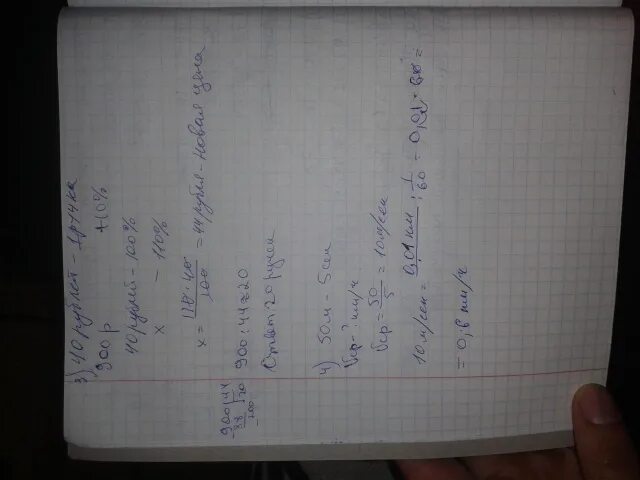 3) 40 рублей - 1 ручка
900 р +10%
40 рублей - 100%
x - 110%
x = 110 · 40 / 100 = 44 рубля - новая цена
900 : 44 ≈ 20
900 | 44
88 | 20
200
Ответ: 20 ручек
4) 50 м - 5 сек
Vср - ? км/ч
Vср = 50 / 5 = 10 м/сек
10 м/сек = 0,01 км : 1/60 = 0,01 · 60 =
= 0,6 км/ч